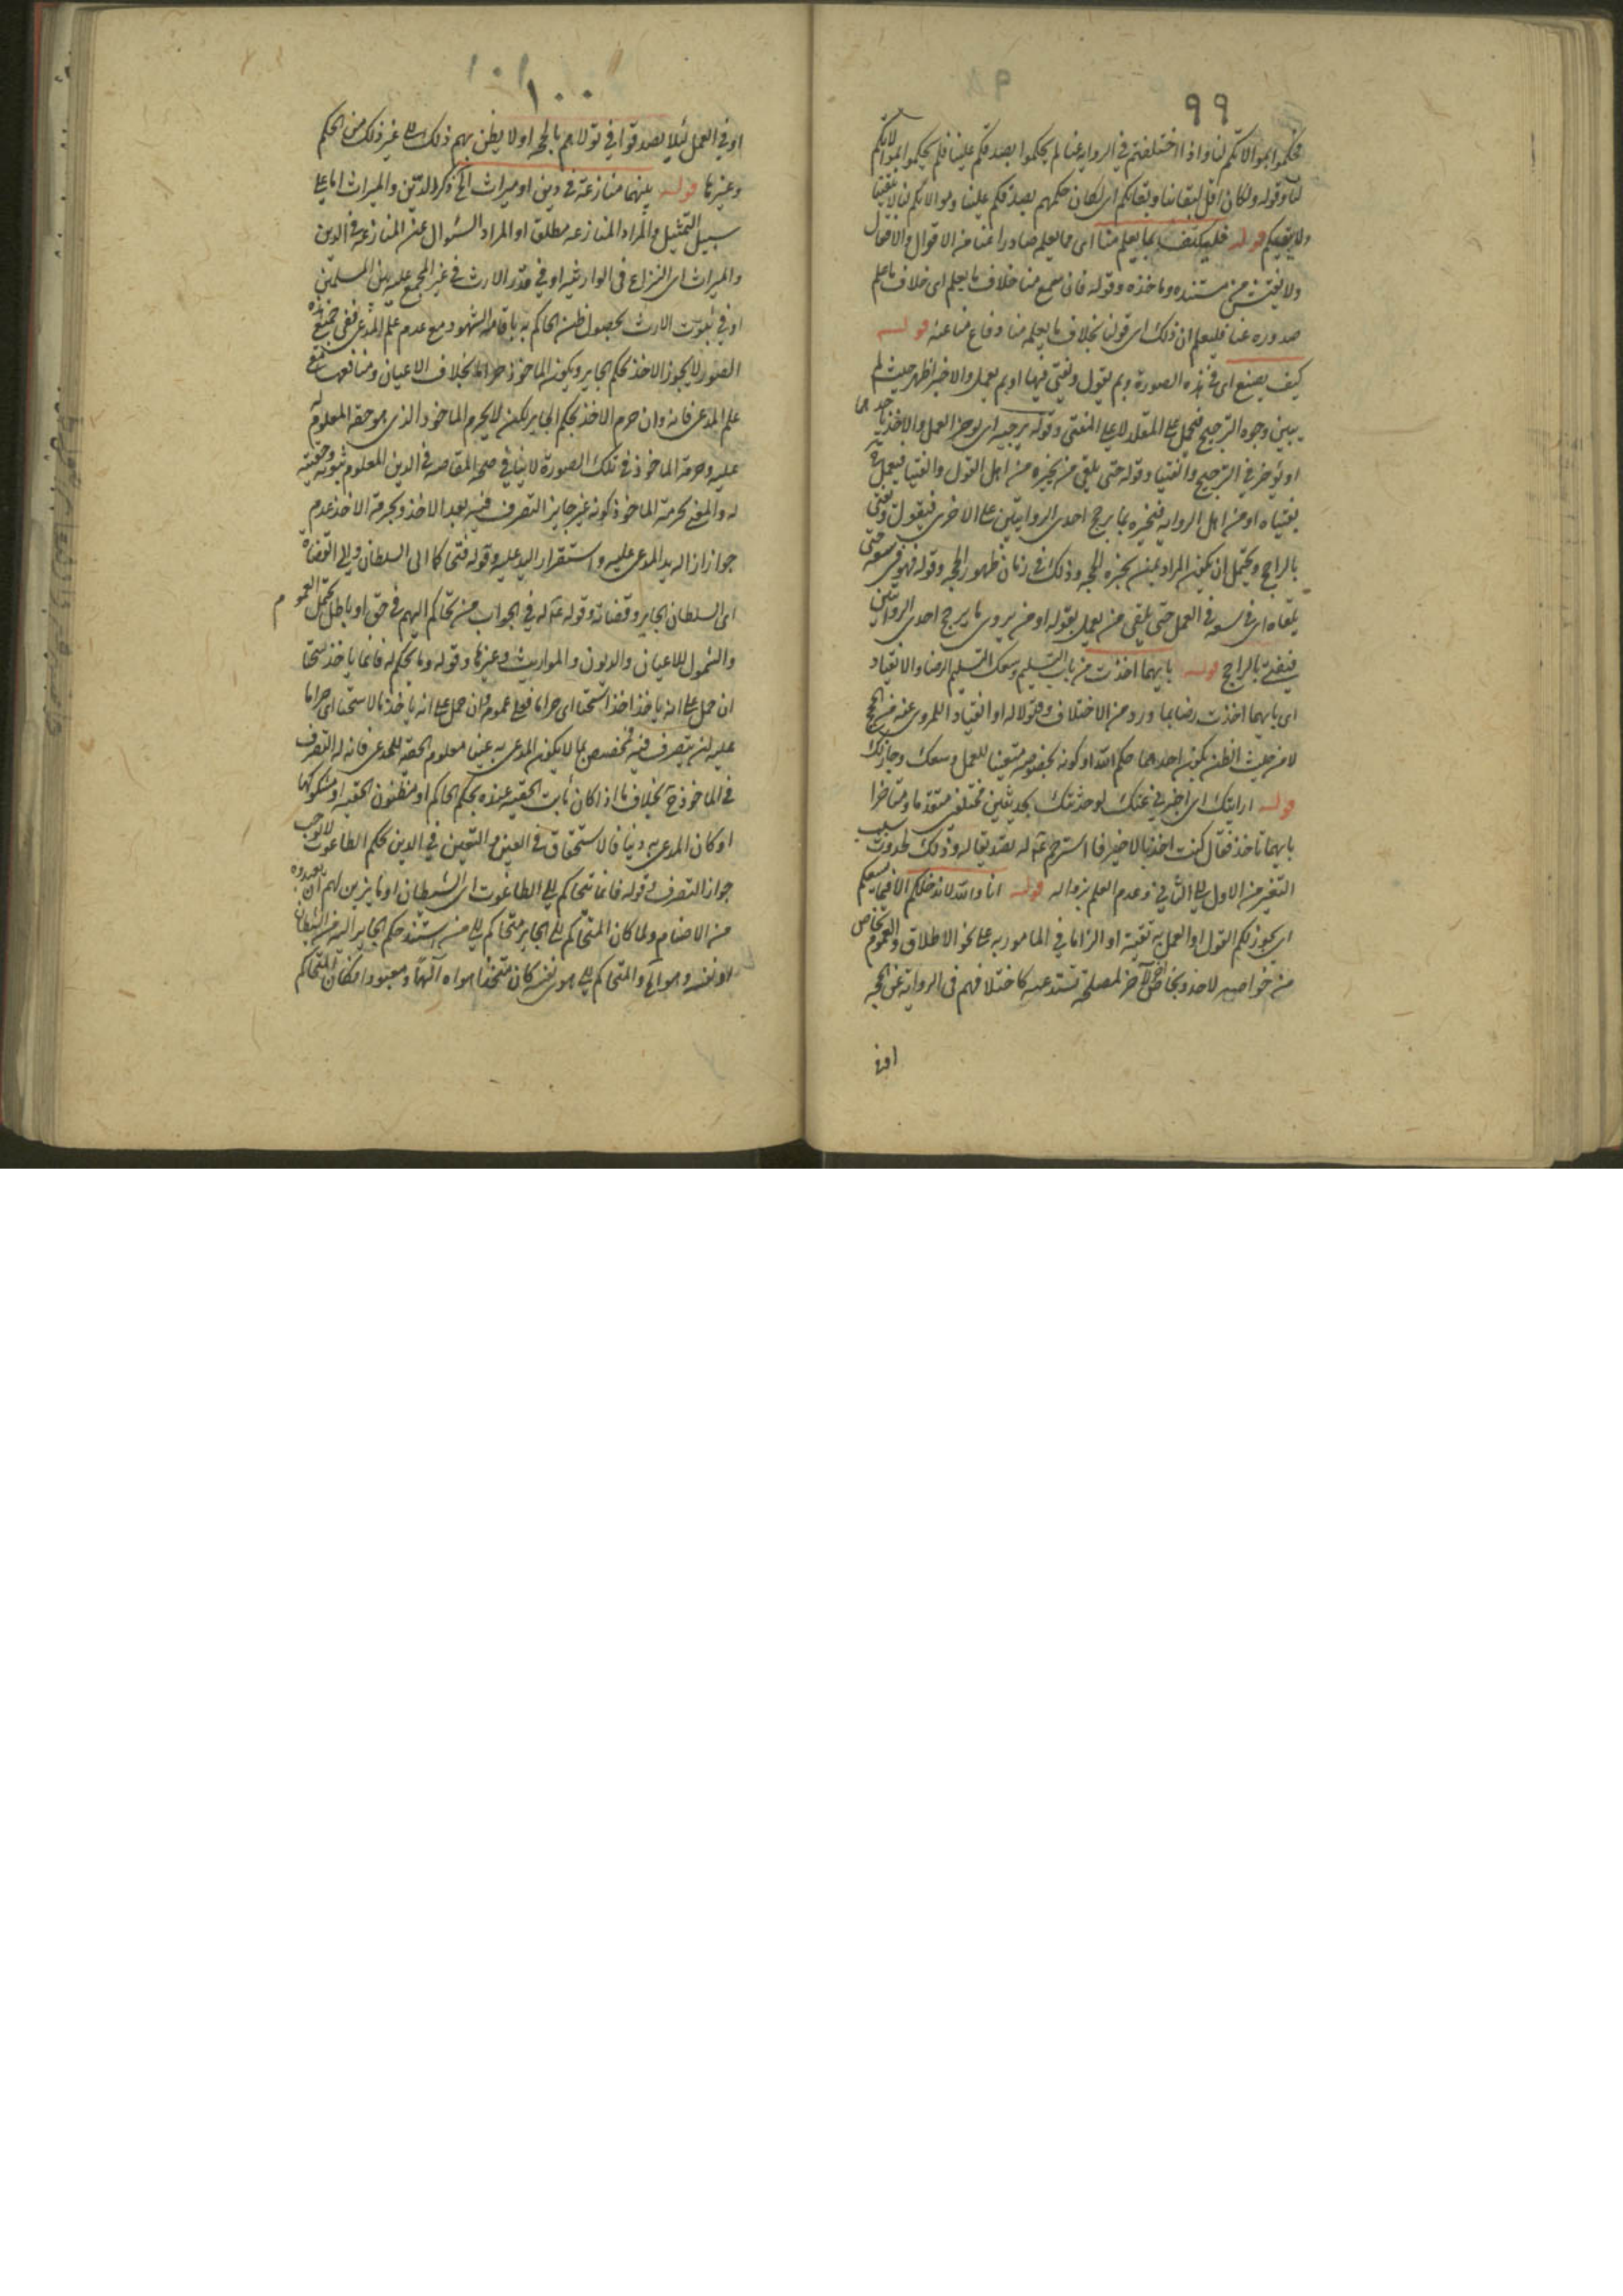 ٩٩
فحكموا بموالاتكم لنا واذا اختلفتم في الرواية عنا لم يحكموا بصدقكم علينا فلم يحكموا بموالاتكم
لنا وقوله ولكان اقل لبقائنا وبقائكم اى لكان حكمهم بصدقكم علينا وموالاتكم لنا لا يبقينا
ولا يبقيكم قوله فليكتف بما يعلم منا اى بما يعلم صادرا عنا من الاقوال والافعال
ولا يفتش عن مستنده وماخذه وقوله فان سمع منا خلاف ما يعلم اى خلاف ما علم
صدوره عنا فليعلم ان ذلك اى قولنا بخلاف ما يعلمه منا دفاع منا عنه قوله
كيف يصنع اى في هذه الصورة وبم يقول ويفتي فيها او بم يعمل والاخير اظهر حيث لم
يبين وجوه الترجيح فيحمل على المقلد لا على المفتي وقوله يرجيه اى يوخر العمل والاخذ باحدهما
او يؤخر في الترجيح والفتيا وقوله حتى يلقى من يخبره من اهل القول والفتيا فيعمل
بفتياه او من اهل الرواية فيخبره بما يرجح احدى الروايتين على الاخرى فيقول ويفتي
بالراجح ويحتمل ان يكون المراد بمن يخبره الحجة وذلك في زمان ظهور الحجة وقوله فهو في سعة حتى
يلقاه اى في سعة في العمل حتى يلقى من يعمل بقوله او من يروى ما يرجح احدى الروايتين
فيفتي بالراجح قوله بايهما اخذت من باب التسليم وسعك التسليم الرضا والانقياد
اى بايهما اخذت رضا بما ورد من الاختلاف وقبولا له او انقيادا للمروى عنه من الحجج
لا من حيث الظن بكون احدهما حكم الله او كونه بخصوصه متعينا للعمل وسعك وجاز لك
قوله ارايتك اى اخبرني عنك لو حدثتك بحديثين مختلفين متقدما ومتاخرا
بايهما تاخذ فقال كنت اخذ بالاخير فاسترحم عم له بصدقه له وذلك لحدوث سبب
التغير من الاول الى الثاني وعدم العلم بزواله قوله انا والله لا ندخلكم الا فيما يسعكم
اى يجوز لكم القول او العمل به تقية او الزاما في المامور به على نحو الاطلاق والعموم
من خواصه لاحد وبخاص لاخر لمصلحة تستدعيه كاختلافهم في الرواية عن الحجة
او في
١٠٠
او في العمل لئلا يصدقوا في تولاهم بالحجة او لا يظن بهم ذلك الى غير ذلك من الحكم
وغيرها قوله بينهما منازعة في دين او ميراث الخ ذكر الدين والميراث اما على
سبيل التمثيل والمراد المنازعة مطلقا او المراد السئوال عن المنازعة في الدين
والميراث اى النزاع في الوارثية او في قدر الارث في غير المجمع عليه بين المسلمين
او في ثبوت الارث بحصول ظن الحاكم به باقامة الشهود مع عدم علم المدعى ففي جميع هذه
الصور لا يجوز الاخذ بحكم الجاير ويكون الماخوذ حراما بخلاف الاعيان ومنافعها مع
علم المدعى فانه وان حرم الاخذ بحكم الجاير لكن لا يحرم الماخوذ الذى هو حقه المعلوم له
عليه وحرمة الماخوذ في تلك الصورة لا ينافي صحة المقاصة في الدين المعلوم ثبوته وحقيته
له والمعنى بحرمة الماخوذ كونه غير جايز التصرف فيه بعد الاخذ وبحرمة الاخذ عدم
جواز ازالة يد المدعى عليه واستقرار اليد عليه وقوله فتحاكما الى السلطان والى القضاة
اى السلطان الجاير وقضاته وقوله عم له في الجواب من تحاكم اليهم في حق او باطل يحتمل العموم
والشمول للاعيان والديون والمواريث وغيرها وقوله وما يحكم له فانما ياخذ سحتا
ان حمل على انه ياخذ اخذا سحتا اى حراما فعلى عمومه وان حمل على انه ياخذ مالا سحتا اى حراما
عليه ان يتصرف فيه فمخصص بما لا يكون المدعى به عينا معلوم الحقية للمدعى فانه له التصرف
في الماخوذ ح بخلاف ما اذا كان ثابت الحقية عنده بحكم الحاكم او مظنون الحقية او مشكوكها
او كان المدعى به دينا فالاستحقاق في العين والتعين في الدين بحكم الطاغوت لا يوجب
جواز التصرف وقوله فانما تحاكم الى الطاغوت اى الشيطان او ما يزين لهم ان يعبدوه
من الاصنام ولما كان المتحاكم الى الجاير متحاكم الى من استند حكم الجاير اليه من الشيطان
او نفسه وهواه والمتحاكم الى هوى نفسه كان متخذا هواه آلها ومعبودا فكان المتحاكم